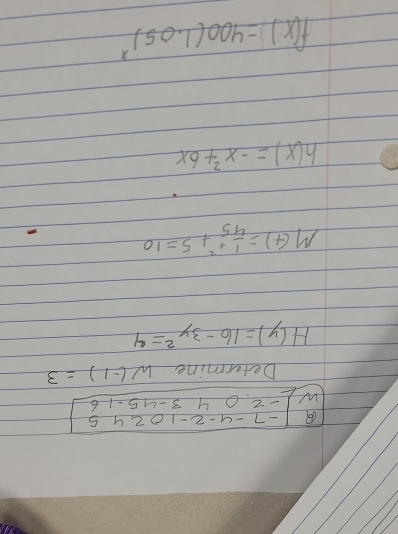 Q -7 -4 -2 -1 0 2 4 5
W -2 0 4 3 -4 5 -1 6
Determine W(-1) = 3
H(y) = 16 - 3y² = 4
M(t) = 1/45 t² + 5 = 10
h(x) = -x² + 6x
f(x) = 400(1.05)ˣ